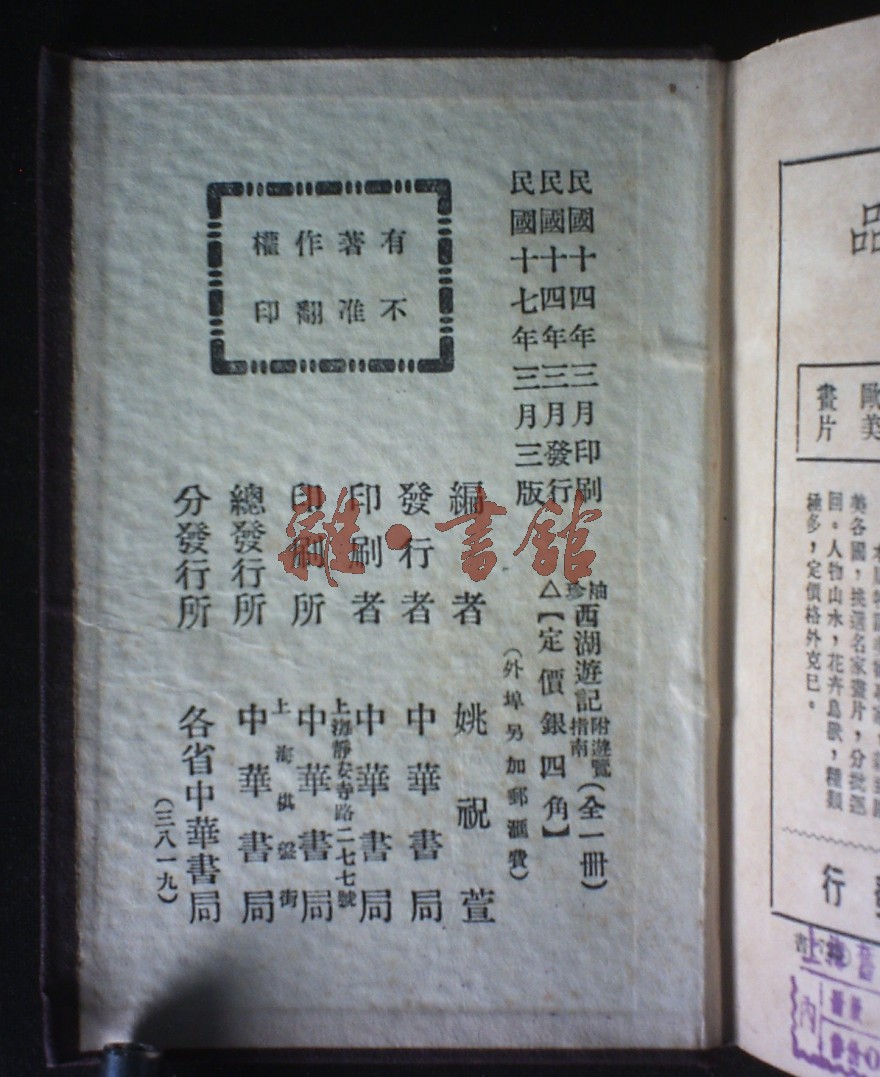 品
歐美
畫片
美各國，挑選名家畫片，分批選
回。人物山水，花卉鳥獸，種類
種多，定價格外克己。
行
民國十四年三月印刷
民國十四年三月發行
民國十七年三月三版
有著作權
不准翻印
袖珍西湖遊記附遊覽指南(全一冊)
△【定價銀四角】
(外埠另加郵滙費)
編者 姚祝萱
發行者 中華書局
印刷者 中華書局
上海靜安寺路二七七號
印刷所 中華書局
上海棋盤街
總發行所 中華書局
分發行所 各省中華書局
(三八一九)
雜·書館